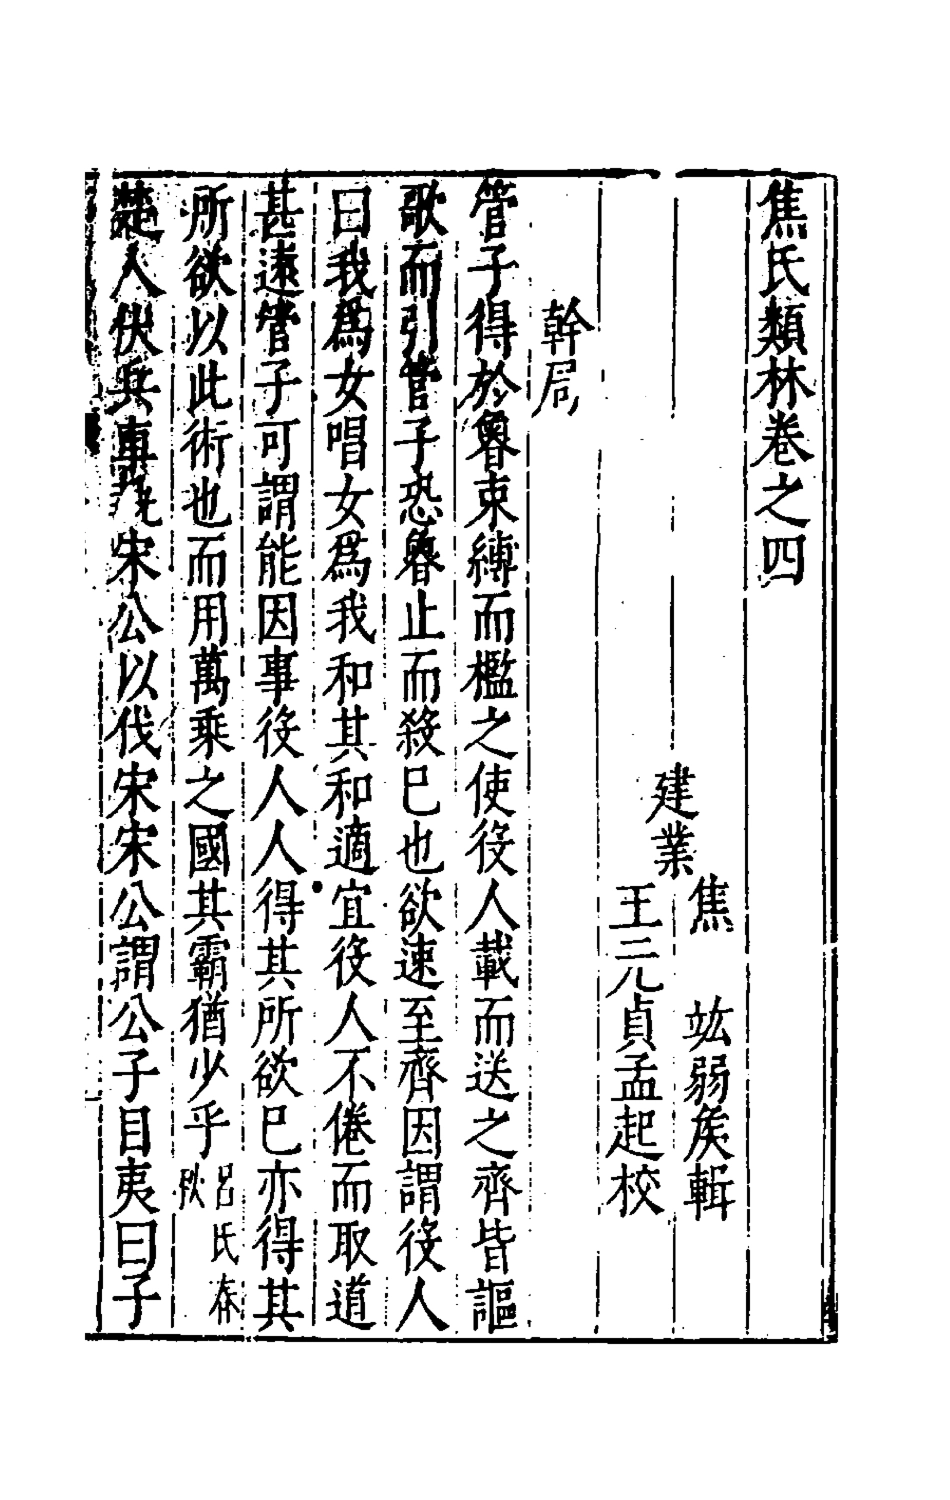 焦氏類林卷之四
建業
焦　竑弱侯輯
王元貞孟起校
幹局
管子得於魯束縛而檻之使役人載而送之齊皆謳
歌而引管子恐魯止而殺已也欲速至齊因謂役人
曰我爲女唱女爲我和其和適宜役人不倦而取道
甚速管子可謂能因事役人人得其所欲已亦得其
所欲以此術也而用萬乘之國其霸猶少乎呂氏春秋
楚人伏兵車執宋公以伐宋宋公謂公子目夷曰子